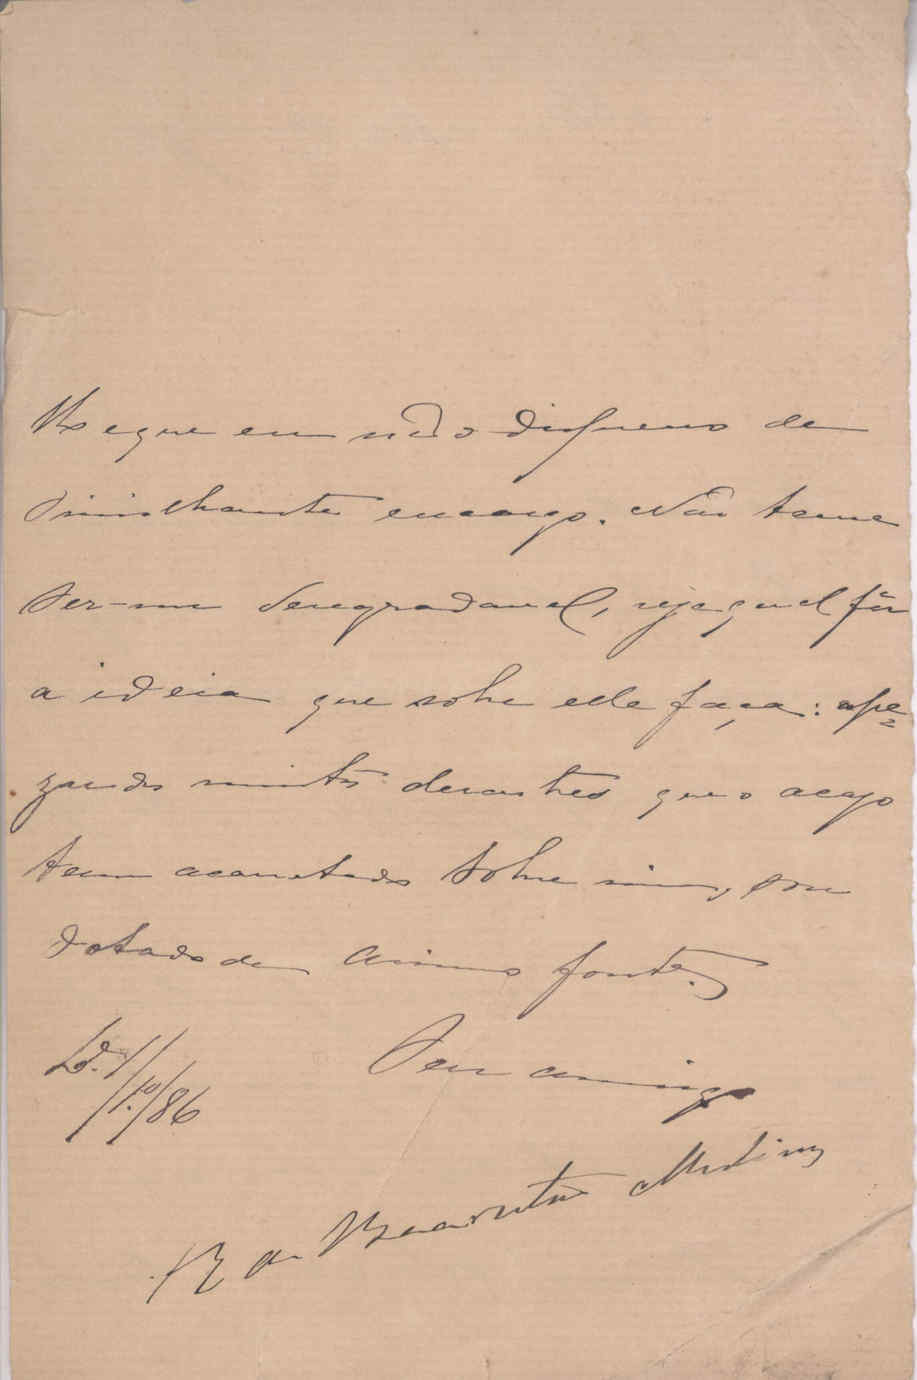 que eu não
similhante encargo. Não tema
ser-me desagradavel, seja qual fôr
a ideia que sobre elle faça: ape=
zar dos muitos desastres que o acazo
tem acarretado sobre mim, sou
dotado de animo forte.
Seu amigo
1/10/86